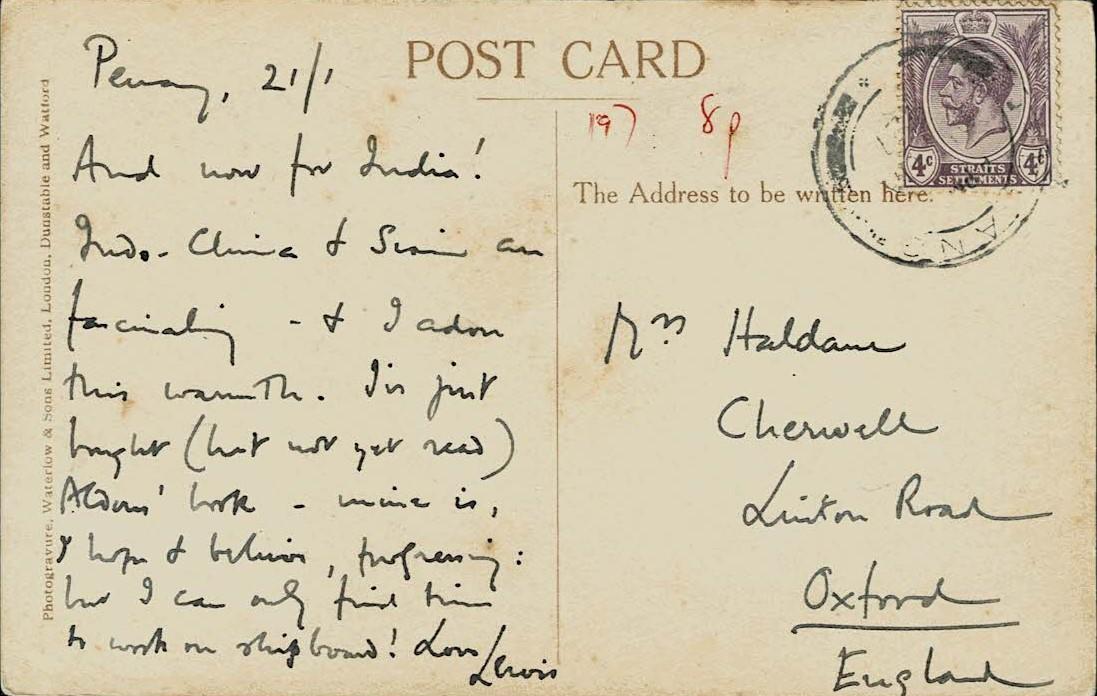 POST CARD
Penang, 21/1
And now for India!
Indo-China & Siam are
fascinating - & I adore
this warmth. I've just
bought (but not yet read)
Aldous' book - mine is,
I hope & believe, progressing:
but I can only find time
to work on shipboard! Love
Lewis
197 8p
The Address to be written here.
Mrs Haldane
Cherwell
Linton Road
Oxford
England
4c 4c
STRAITS
SETTLEMENTS
Photogravure, Waterlow & Sons Limited, London, Dunstable and Watford